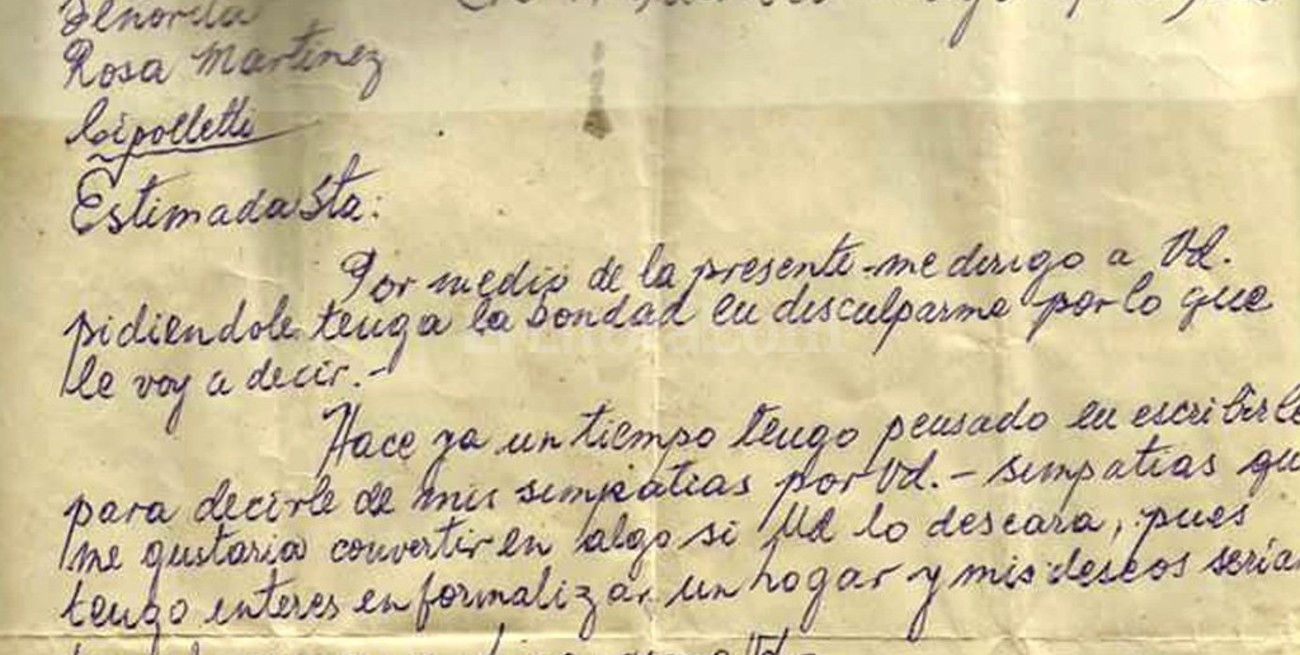 Señorita
Rosa Martinez
Cipolletti
Estimada Sta:
Por medio de la presente me dirigo a Vd.
pidiendole tenga la bondad en disculparme por lo que
le voy a decir.-
Hace ya un tiempo tengo pensado en escribirle
para decirle de mis simpatias por Vd. - simpatias qu
me gustaria convertir en algo si Ud lo deseara, pues
tengo interes en formalizar un hogar y mis deseos seria
Vd -